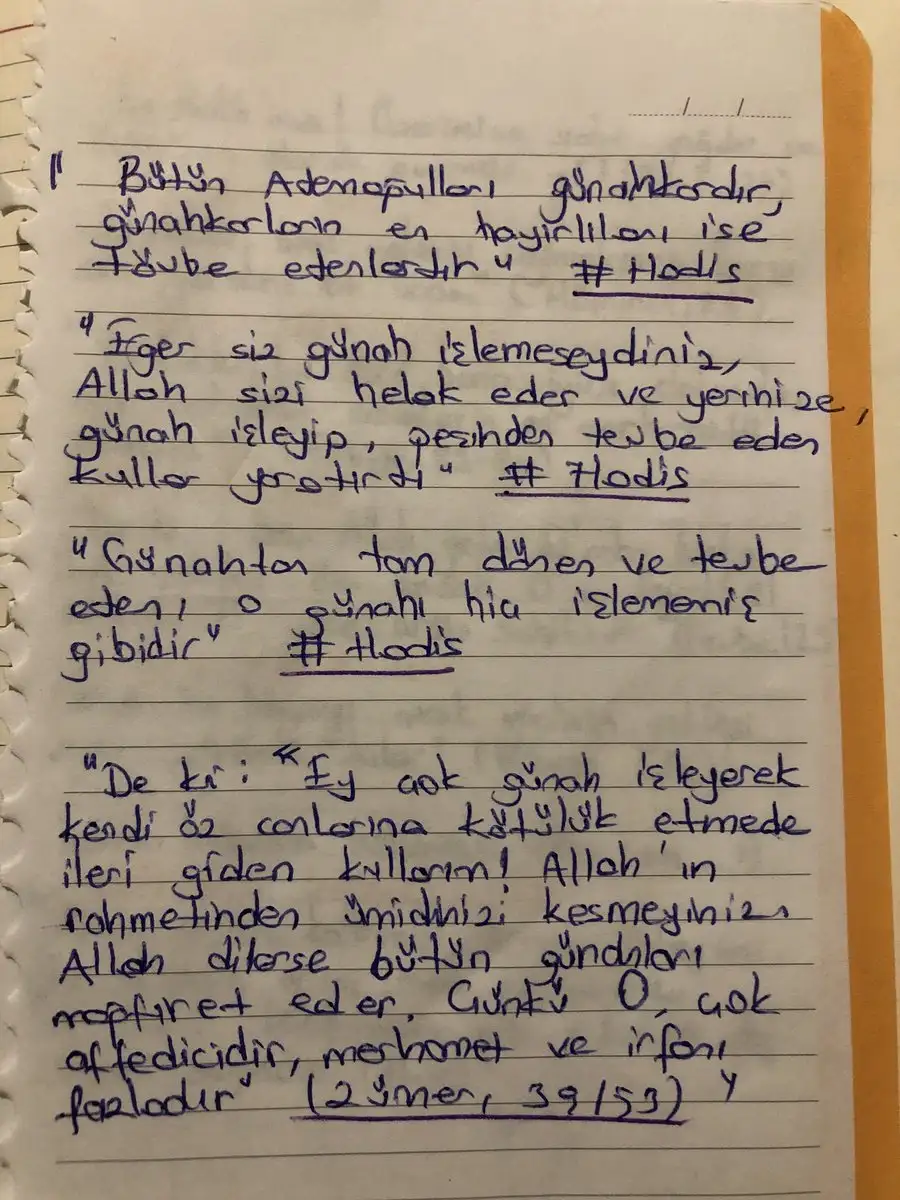 " Bütün Ademoğulları günahkardır,
günahkarların en hayırlıları ise
tövbe edenlerdir" # Hadis
"Eğer siz günah işlemeseydiniz,
Allah sizi helak eder ve yerinize,
günah işleyip, peşinden tevbe eden
kullar yaratırdı" # Hadis
"Günahtan tam dönen ve tevbe
eden, o günahı hiç işlememiş
gibidir" # Hadis
"De ki: "Ey çok günah işleyerek
kendi öz canlarına kötülük etmede
ileri giden kullarım! Allah'ın
rahmetinden ümidinizi kesmeyiniz.
Allah dilerse bütün günahları
mağfiret eder. Çünkü O, çok
affedicidir, merhamet ve irfanı
fazladır" (Zümer, 39/53) "